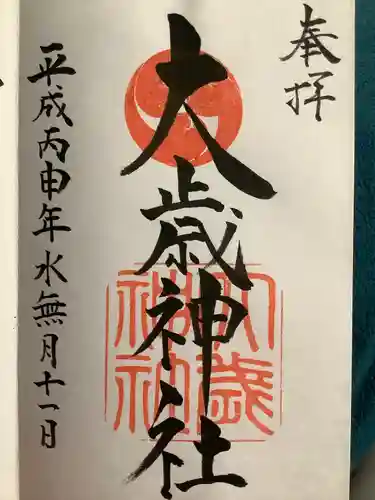 奉拝
大歳神社
大歳神社
平成丙申年水無月十一日